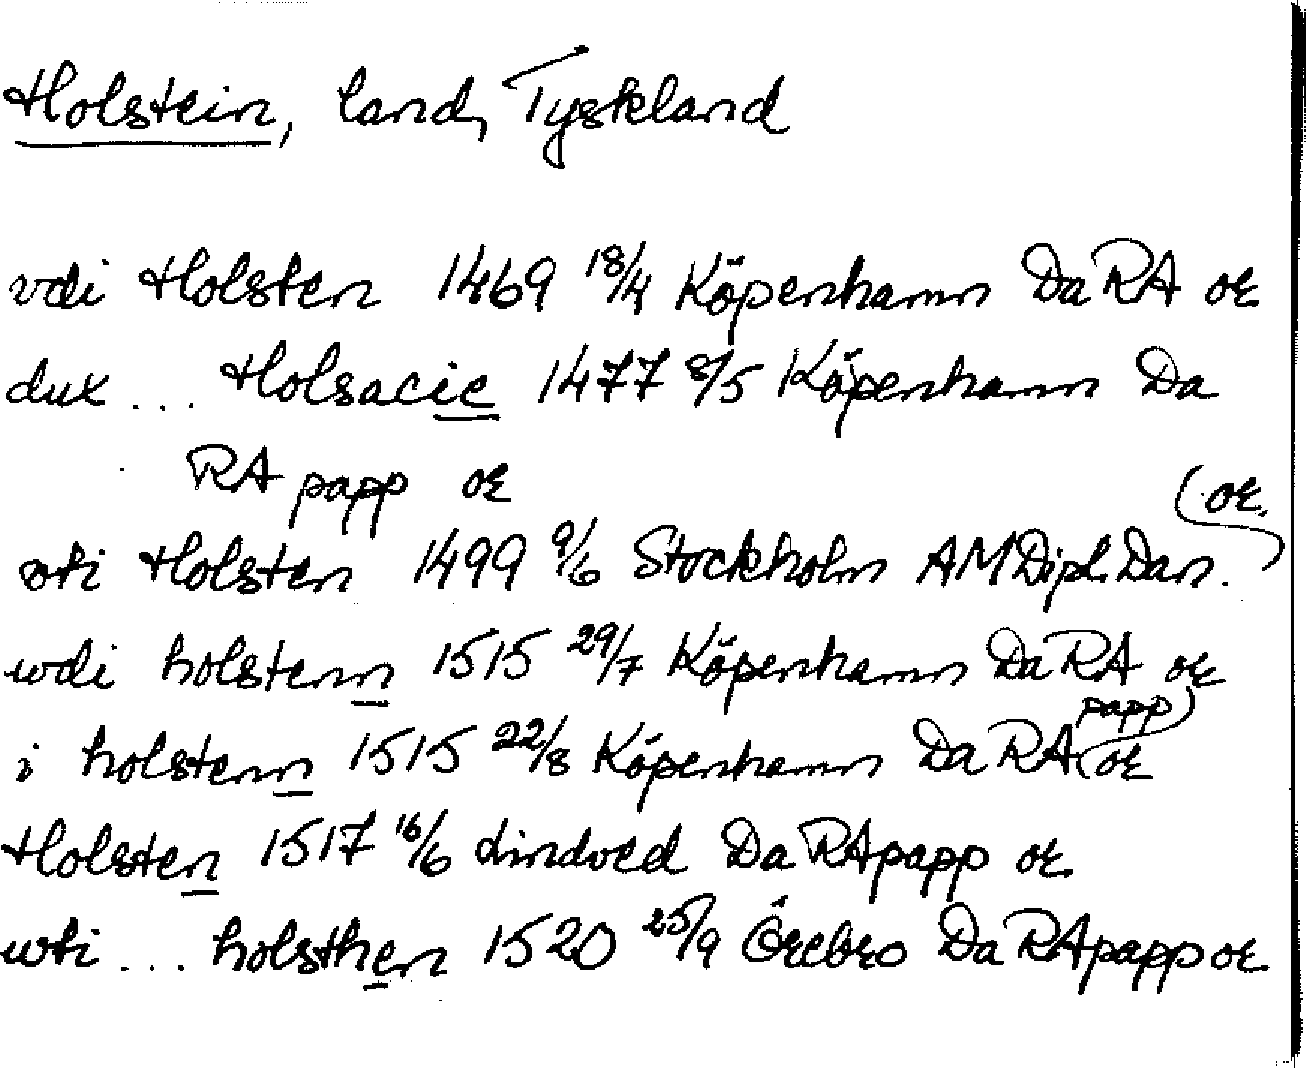 Holstein, land, Tyskland
vdi Holsten 1469 18/4 Köpenhamn DaRA or
dux ... Holsacie 1477 8/5 Köpenhamn Da
RA papp or
(or.
vti Holsten 1499 9/6 Stockholm AMDipl.Dan.
wdi holstenn 1515 29/7 Köpenhamn DaRA or
papp)
i holstenn 1515 22/8 Köpenhamn DaRA (or
Holsten 1517 16/6 Lindved DaRApapp or
wti ... holsthen 1520 25/9 Örebro DaRApapp or